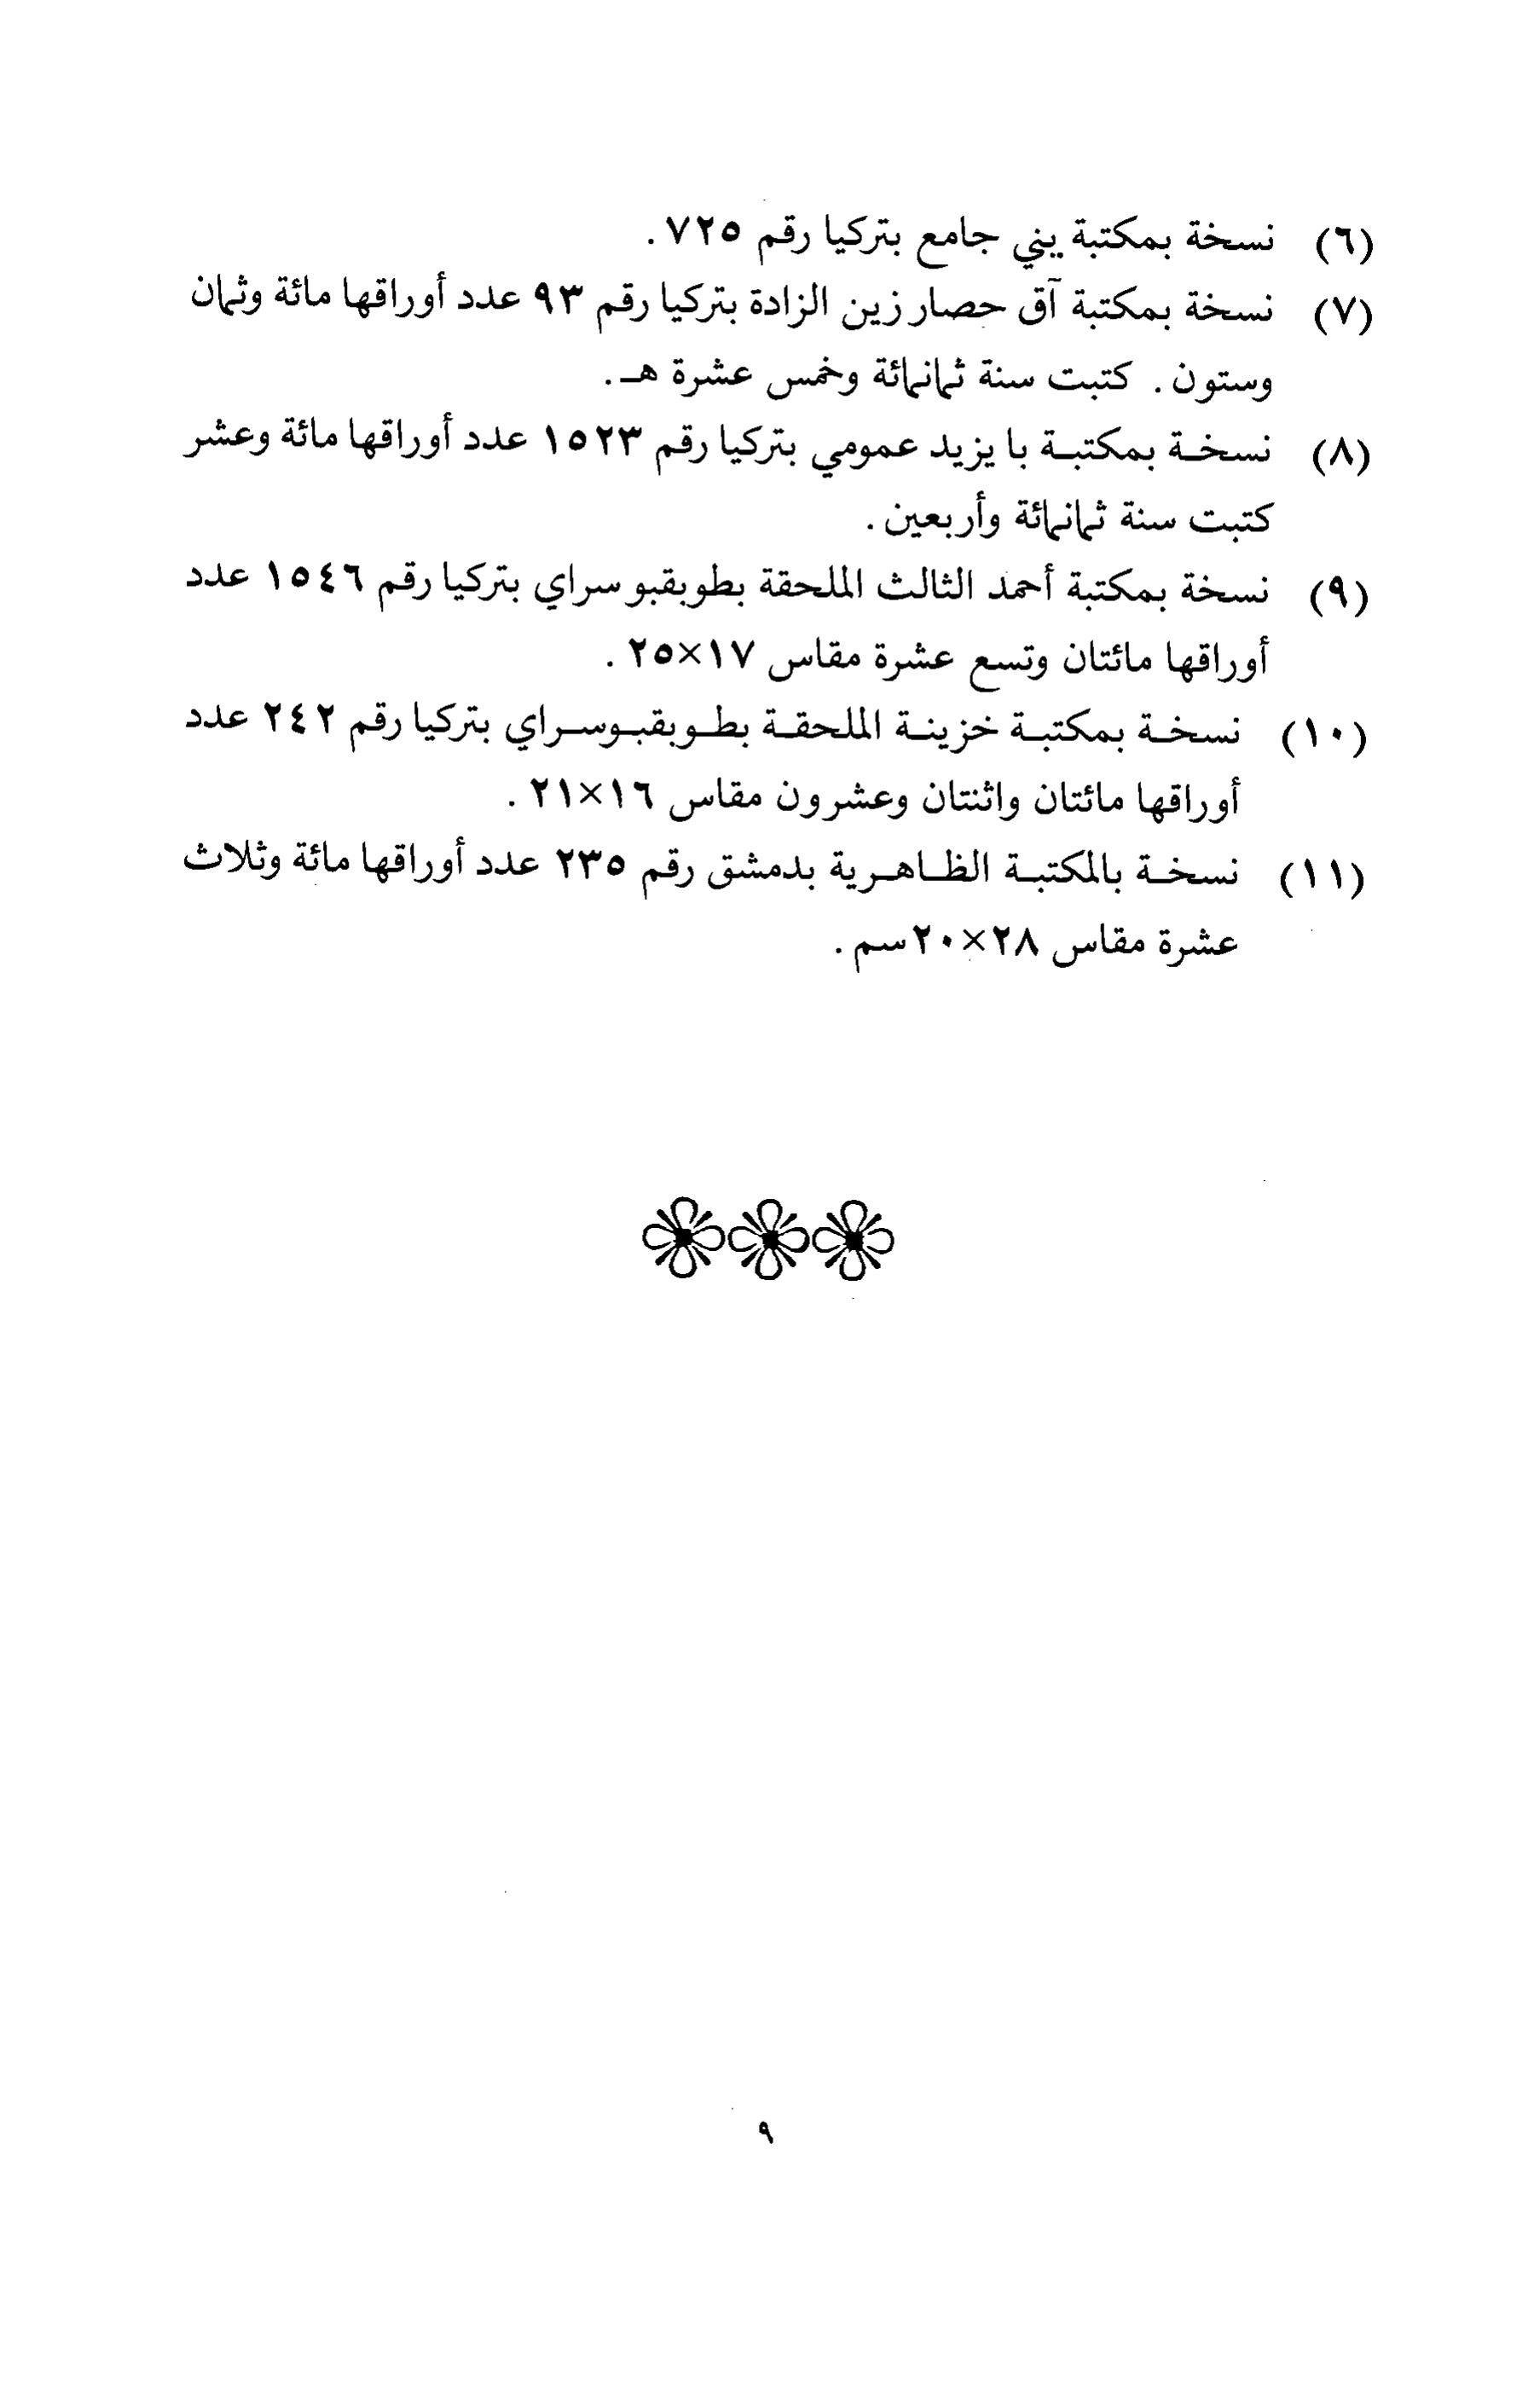 (٦) نسخة بمكتبة يني جامع بتركيا رقم ٧٢٥ .
(٧) نسخة بمكتبة آق حصار زين الزادة بتركيا رقم ٩٣ عدد أوراقها مائة وثمان
وستون . كتبت سنة ثمانمائة وخمس عشرة هـ .
(٨) نسخة بمكتبة با يزيد عمومي بتركيا رقم ١٥٢٣ عدد أوراقها مائة وعشر
كتبت سنة ثمانمائة وأربعين .
(٩) نسخة بمكتبة أحمد الثالث الملحقة بطوبقبو سراي بتركيا رقم ١٥٤٦ عدد
أوراقها مائتان وتسع عشرة مقاس ١٧×٢٥ .
(١٠) نسخة بمكتبة خزينة الملحقة بطوبقبوسراي بتركيا رقم ٢٤٢ عدد
أوراقها مائتان واثنتان وعشرون مقاس ١٦×٢١ .
(١١) نسخة بالمكتبة الظاهرية بدمشق رقم ٢٣٥ عدد أوراقها مائة وثلاث
عشرة مقاس ٢٨×٢٠سم .
٩